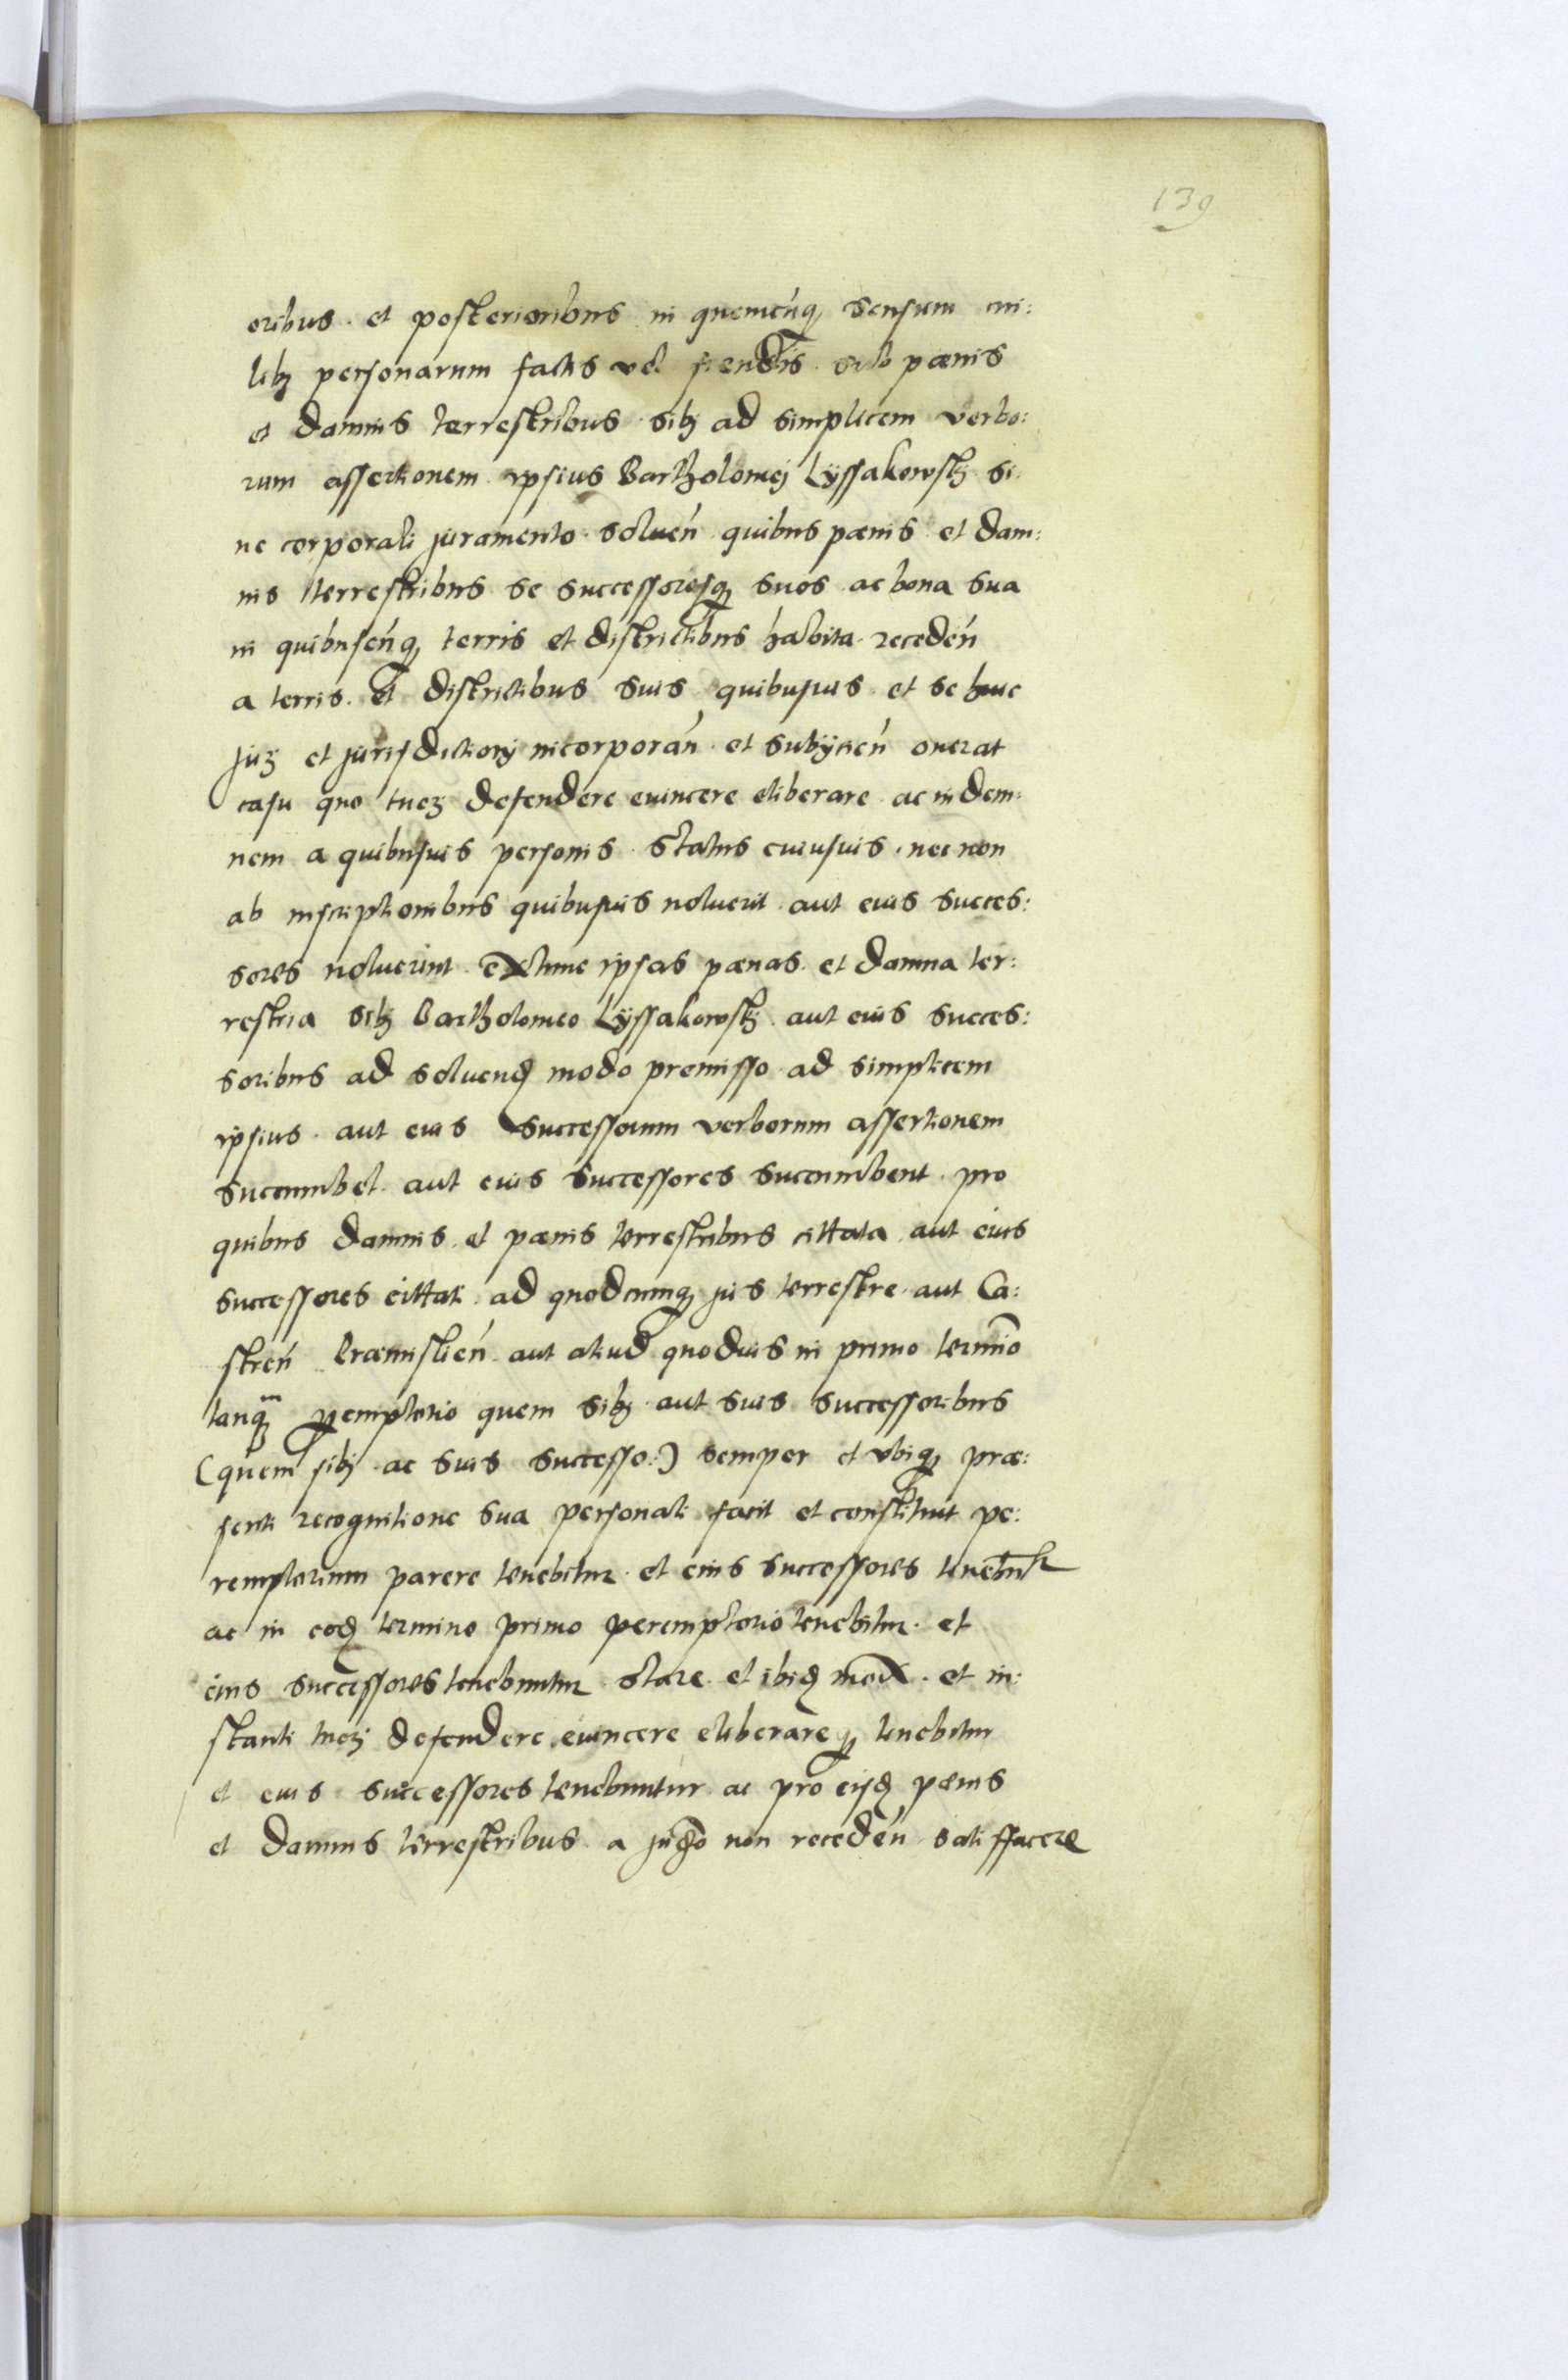 139
oribus et posterioribus in quemcunq₃ sensum cui:
lib₃ personarum factis vel fiendis sub pænis
et damnis terrestribus sib₃ ad simplicem verbo:
rum assertionem ipsius Bartholomej Lÿssakowskj si
ne corporali juramento solueń quibus pænis et dam:
nis terrestribus se successoresq₃ suos ac bona sua
in quibuscunq₃ terris et districtibus habita recedeń
a terris et districtibus suis quibusuis et se huic
juri et jurisdictionj incorporań et subijcień onerat
casu quo tuerj defendere euincere eliberare ac indem:
nem a quibusuis personis status cuiusuis nec non
ab inscriptionibus quibusuis noluerit aut eius succes:
sores noluerint extunc ipsas pænas et damna ter:
restria sibj Bartholomeo Lÿssakowskj aut eius succes:
soribus ad soluend modo premisso ad simplicem
ipsius aut eius successorum verborum assertionem
succumbet aut eius successores succumbent pro
quibus damnis et pænis terrestribus cittata aut eius
successores cittati ad quodcunq₃ jus terrestre aut Ca:
streń Præmislień aut aliud quoduis in primo termĩo
tanq₃ᵐ peremptorio quem sibj aut suis successoribus
(quem sibj ac suis successo:) semper et vbiq₃ præ:
senti recognitione sua personali facit et constituit pe:
remptorium parere tenebitur et eius successores tenebntr
ac in eod termino primo peremptorio tenebitur et
eius successores tenebuntur stare et ibid mox et in:
stanti tuerj defendere euincere eliberareq₃ tenebitur
et eius successores tenebuntur ac pro eijsd pænis
et damnis terrestribus a juđo non recedeń satisfacere